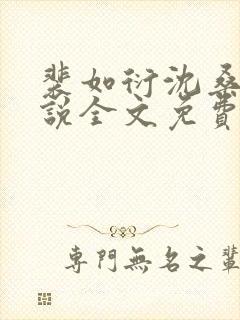 裴如衍沈桑
說全文免費
專門無名之輩